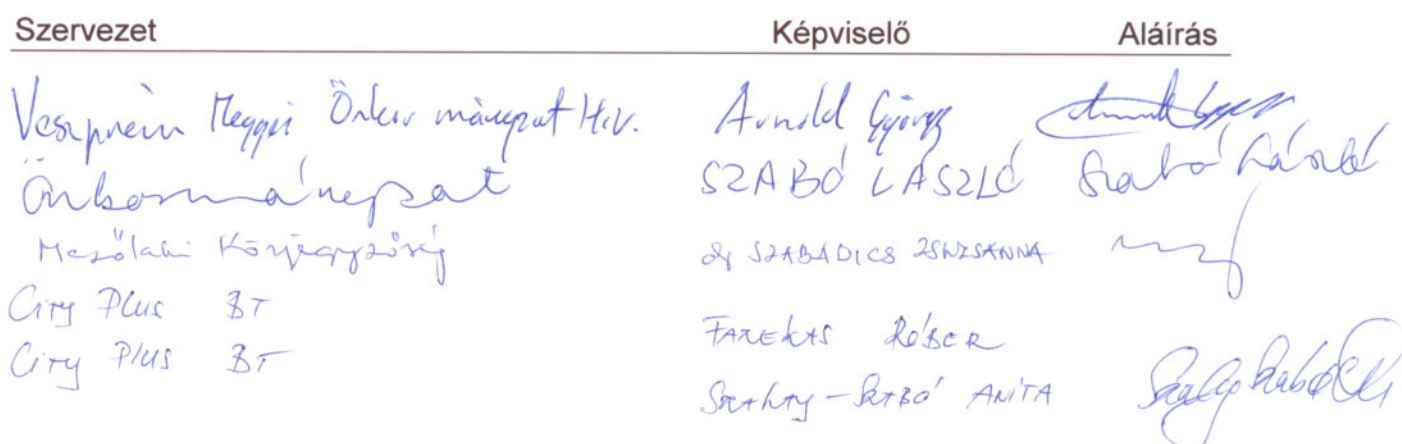 Szervezet Képviselő Aláírás
Veszprém Megyei Önkormányzat Hiv. Arnold György
Önkormányzat SZABÓ LÁSZLÓ Szabó László
Mezőlaki Körjegyzőség dr SZABADICS ZSUZSANNA
City Plus BT
FAZEKAS RÓBER
City Plus BT
SZALAY-SZABÓ ANITA